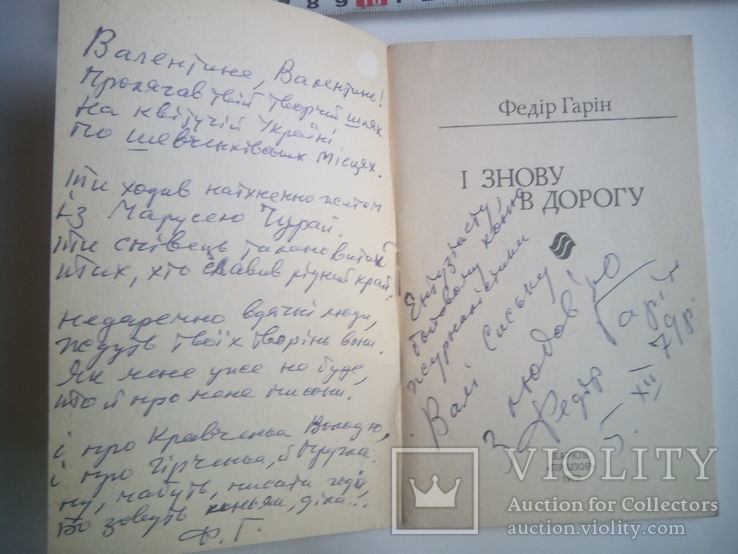 8 9 10 1
Валентине, Валентине!
Проляґав твій творчий шлях
На квітучій Україні
По шевченківських місцях.
Ти ходив натхненно житом
Із Марусею Чурай.
Ти співець талановитих
тих, хто славив рідний край!
недаремно вдячні люди,
Ждуть твоїх творінь вони.
Як мене уже не буде,
то й про мене
і про Кравченька Володю,
і про Гірченка, й
ну, мабуть, писати годі,
Бо зовуть коньяк, діла...
Ф. Г.
Федір Гарін
І ЗНОВУ
В ДОРОГУ
Ентузіасту,
бойовому коню
журналістики
Валі
З любов'ю
Федір Гарін
5 XII 79 р.
VIOLITY
Auction for Collectors
auction.violity.com